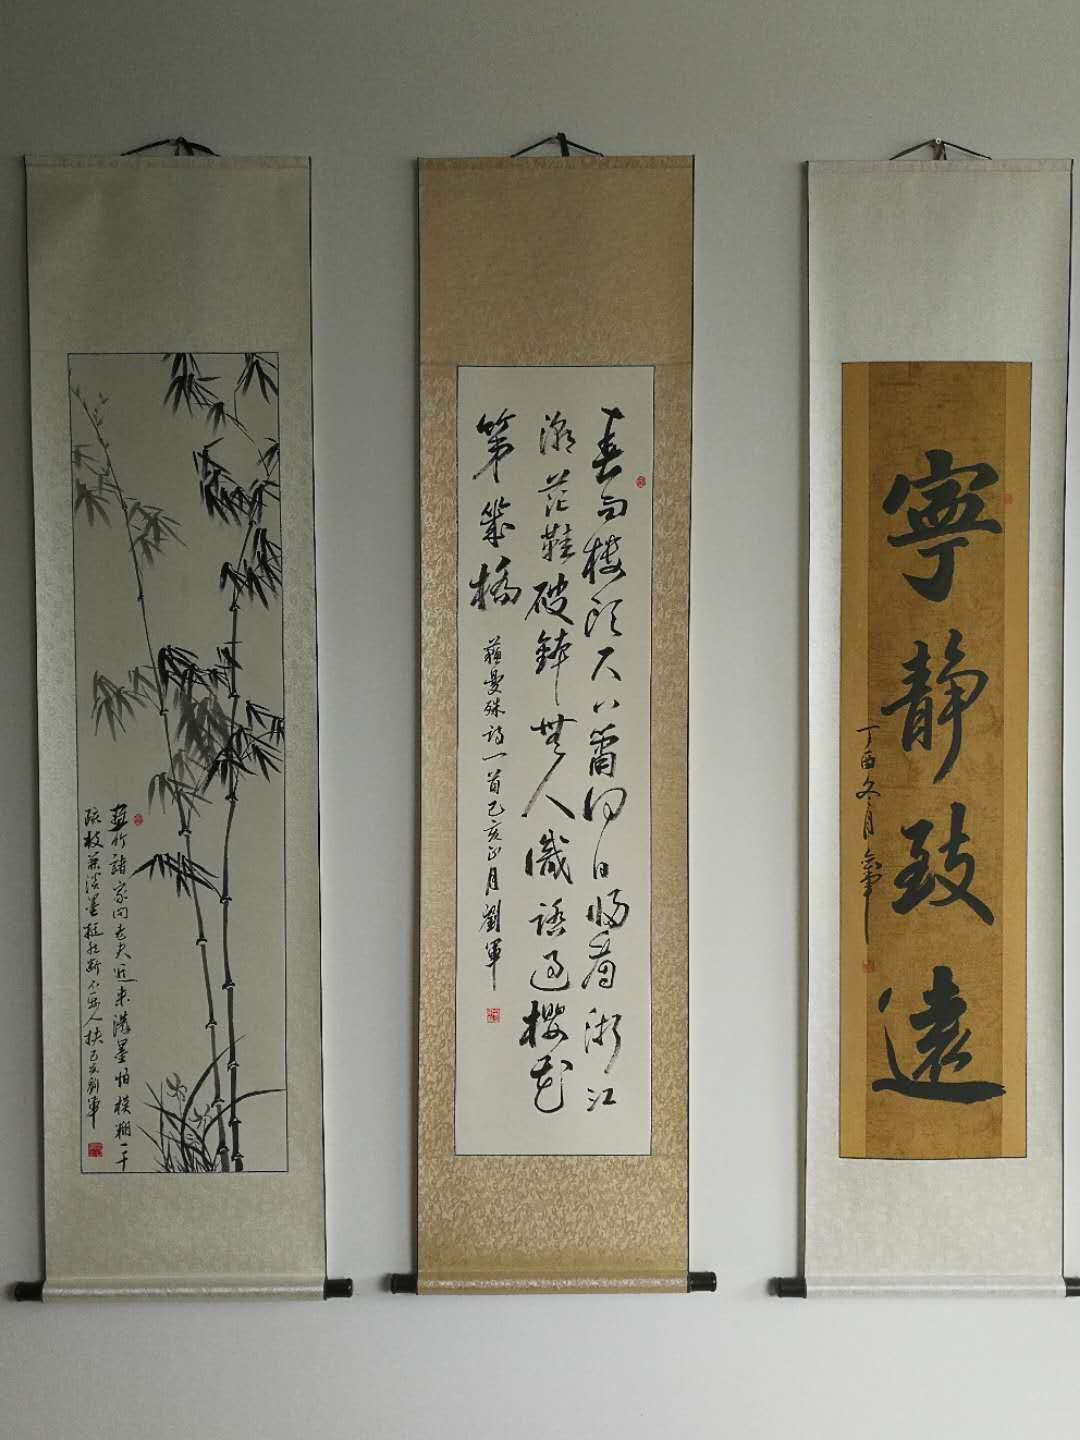 畫竹諸家问老夫近来潑墨怕模糊一干
疏枝兼淡墨挺然斷不要人扶己亥劉軍
春雨樓頭尺八簫何日歸看浙江
潮茫鞋破缽無人識踏過櫻花
第幾橋
蘇曼殊詩一首己亥正月劉軍
寧靜致遠
丁酉冬月